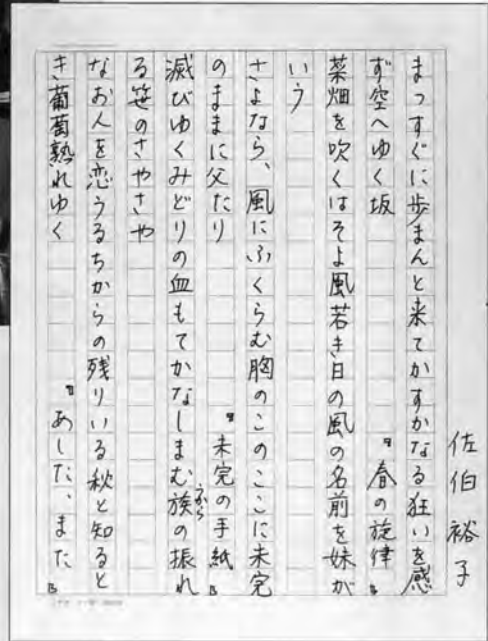 佐伯裕子
まっすぐに歩まんと来てかすかなる狂いを感
ず空へゆく坂　『春の旋律』
菜畑を吹くはそよ風若き日の風の名前を妹が
いう
さよなら、風にふくらむ胸のこのここに未完
のままに父たり　『未完の手紙』
滅びゆくみどりの血もてかなしまむ族の振れ
うから
る笹のさやさや
なお人を恋うるちからの残りいる秋と知ると
き葡萄熟れゆく　『あした、また』